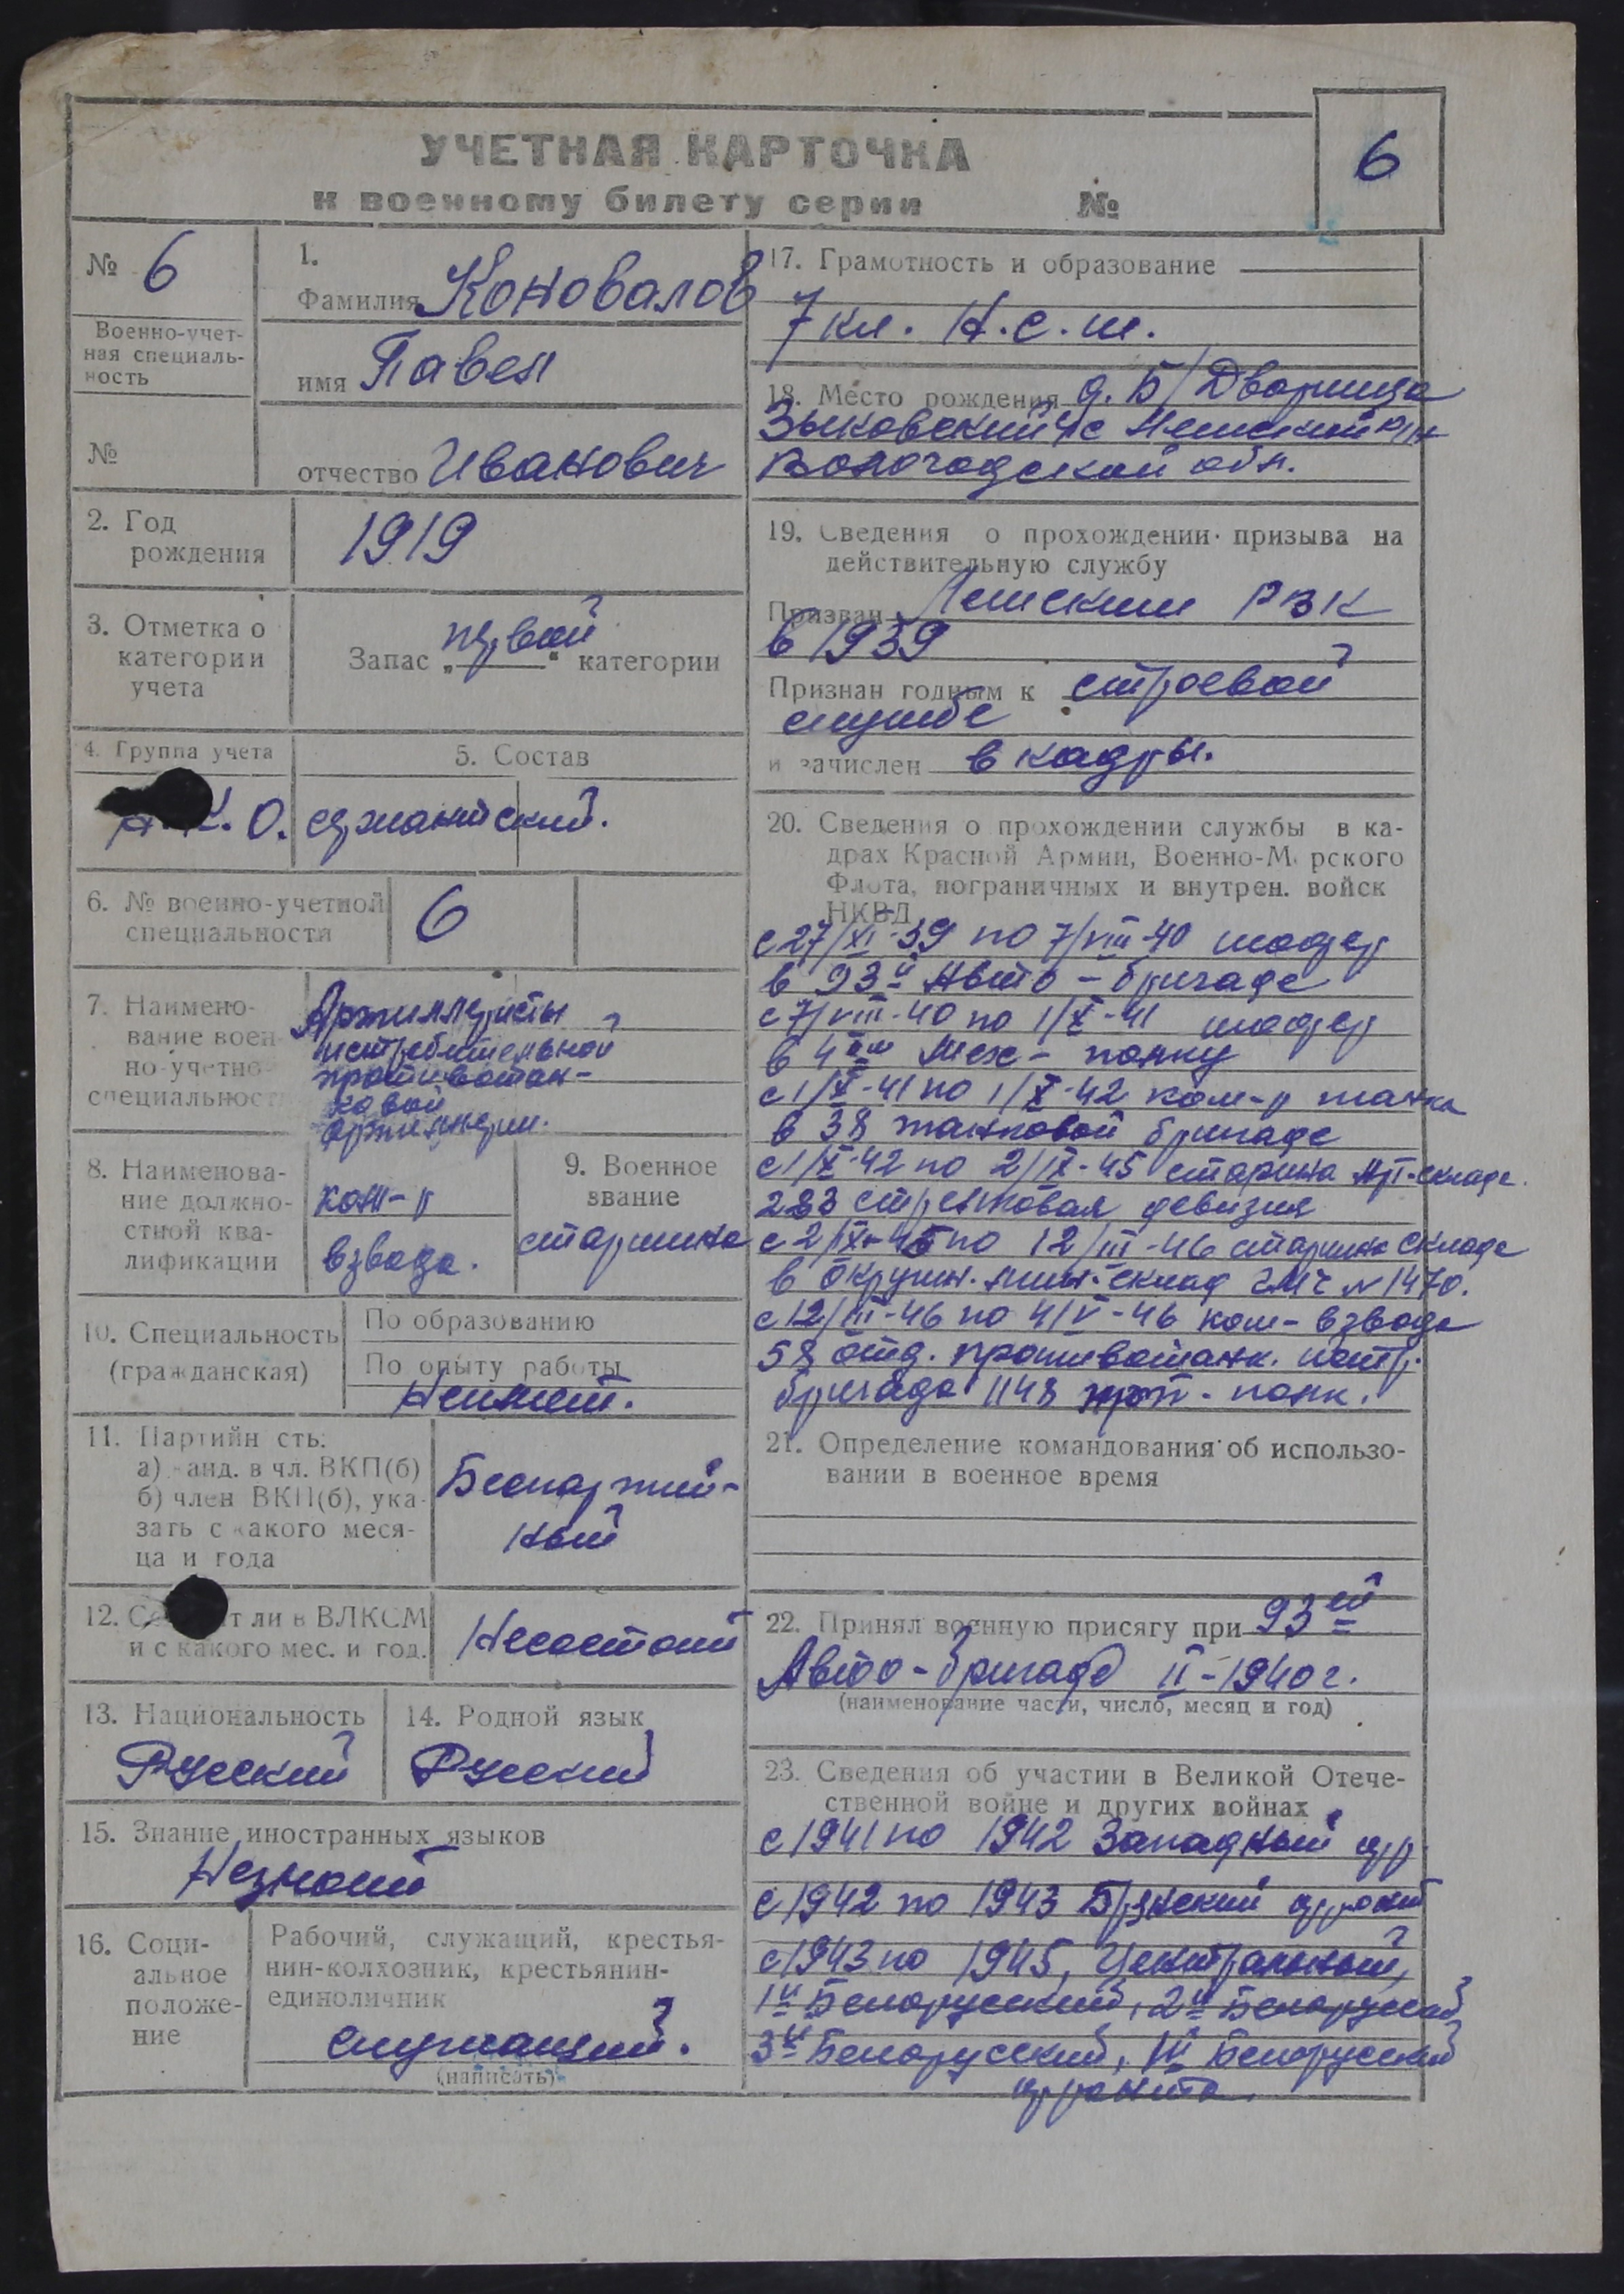 УЧЕТНАЯ КАРТОЧКА
к военному билету серии №
6
№ 6
Военно-учет-
ная специаль-
ность
№
1.
Фамилия Коновалов
имя Павел
отчество Иванович
2. Год
рождения
1919
3. Отметка о
категории
учета
Запас „первой“ категории
4. Группа учета
О.
5. Состав
сержантский.
6. № военно-учетной
специальности
6
7. Наимено-
вание воен
но-учетно
специальност
Артиллеристы
истребительной
противотан-
ковой
артиллерии.
8. Наименова-
ние должно-
стной ква-
лификации
ком-р
взвода.
9. Военное
звание
старшина
10. Специальность
(гражданская)
По образованию
По опыту работы
Неимеет.
11. Партийн сть:
а) канд. в чл. ВКП(б)
б) член ВКП(б), ука-
зать с какого меся-
ца и года
Беспартий-
ный
12. Со т ли в ВЛКСМ
и с какого мес. и год.
Несостоит
13. Национальность
Русский
14. Родной язык
Русский
15. Знание иностранных языков
Незнает
16. Соци-
альное
положе-
ние
Рабочий, служащий, крестья-
нин-колхозник, крестьянин-
единоличник
служащий.
(написать)
17. Грамотность и образование
7 кл. Н.с.ш.
18. Место рождения д. Б/Дворища
Зыковский с/с
Вологодской обл.
19. Сведения о прохождении призыва на
действительную службу
Призван РВК
в 1939
Признан годным к строевой
службе
и зачислен в кадры.
20. Сведения о прохождении службы в ка-
драх Красной Армии, Военно-М рского
Флота, пограничных и внутрен. войск
НКВД
с 27/XI-39 по 7/VIII-40 шофер
в 93й Авто-бригаде
с 7/VIII-40 по 1/X-41 шофер
в 4ом Мех-полку
с 1/X-41 по 1/X-42 ком-р танка
в 38 танковой бригаде
с 1/X-42 по 2/IX-45 старшина Арт-склада.
283 стрелковая девизия
с 2/IX-45 по 12/III-46 старшина склада
в окружн. склад ГМЧ №1470.
с 12/III-46 по 4/V-46 ком-взвода
58 отд. противотанк. истр.
бригада 1148 арт-полк.
21. Определение командования об использо-
вании в военное время
22. Принял военную присягу при 93ей
Авто-бригаде II-1940г.
(наименование части, число, месяц и год)
23. Сведения об участии в Великой Отече-
ственной войне и других войнах
с 1941 по 1942 Западный фр
с 1942 по 1943 Брянский фронт
с 1943 по 1945, Центральный,
1й Белорусский, 2й Белорусский,
3й Белорусский, 1й Белорусский
фронта.